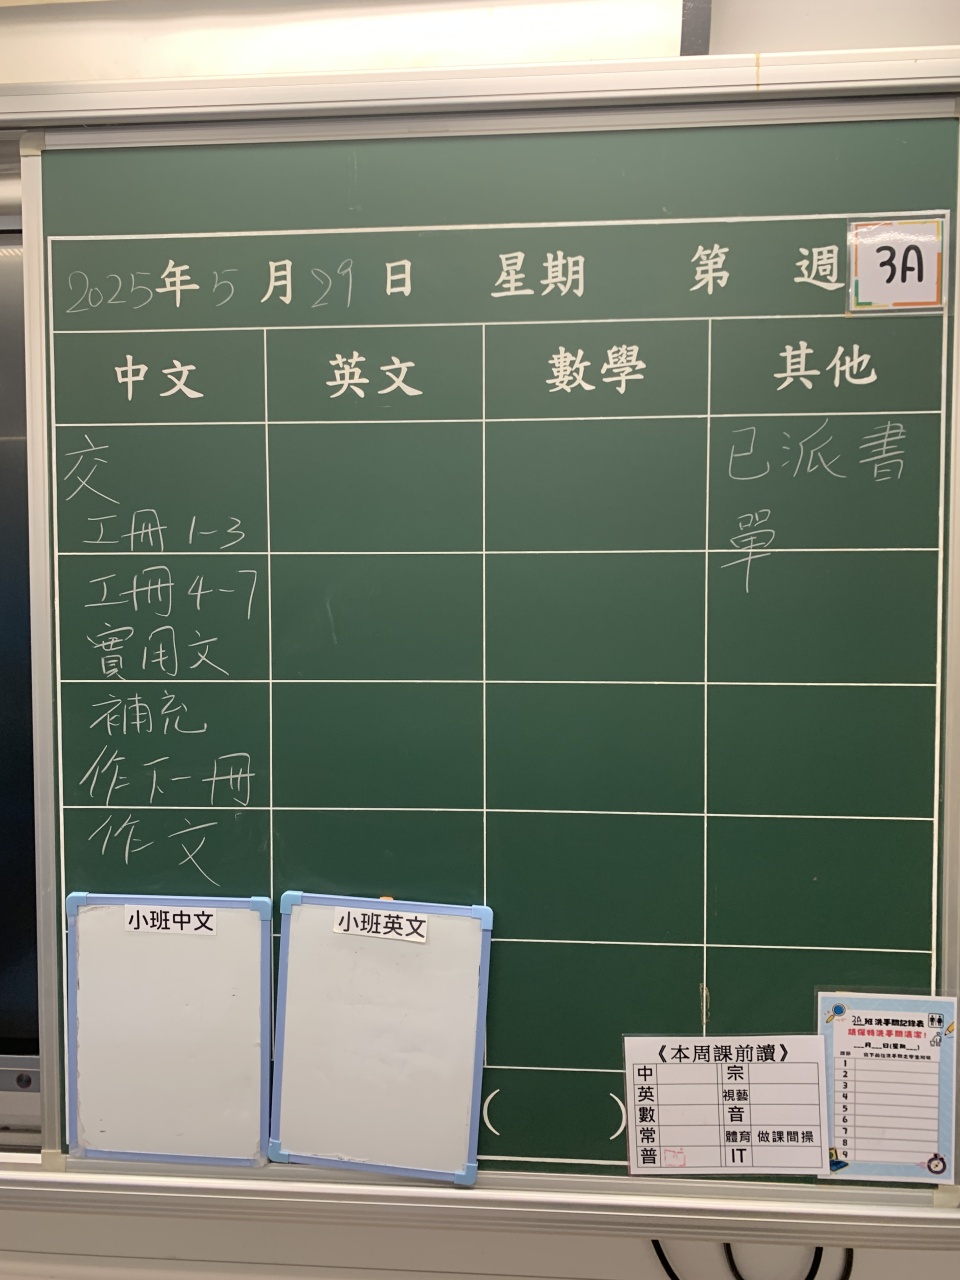 2025年5月29日 星期 第 週 3A
中文 英文 數學 其他
交
工冊 1-3
工冊 4-7
實用文
補充
作下一冊
作文
已派書
單
小班中文
小班英文
( )
《本周課前讀》
中 宗
英 視藝
數 音
常 體育 做課間操
普 IT
3A班洗手間記錄表
請保持洗手間清潔!
___月___日(星期___)
1
2
3
4
5
6
7
8
9